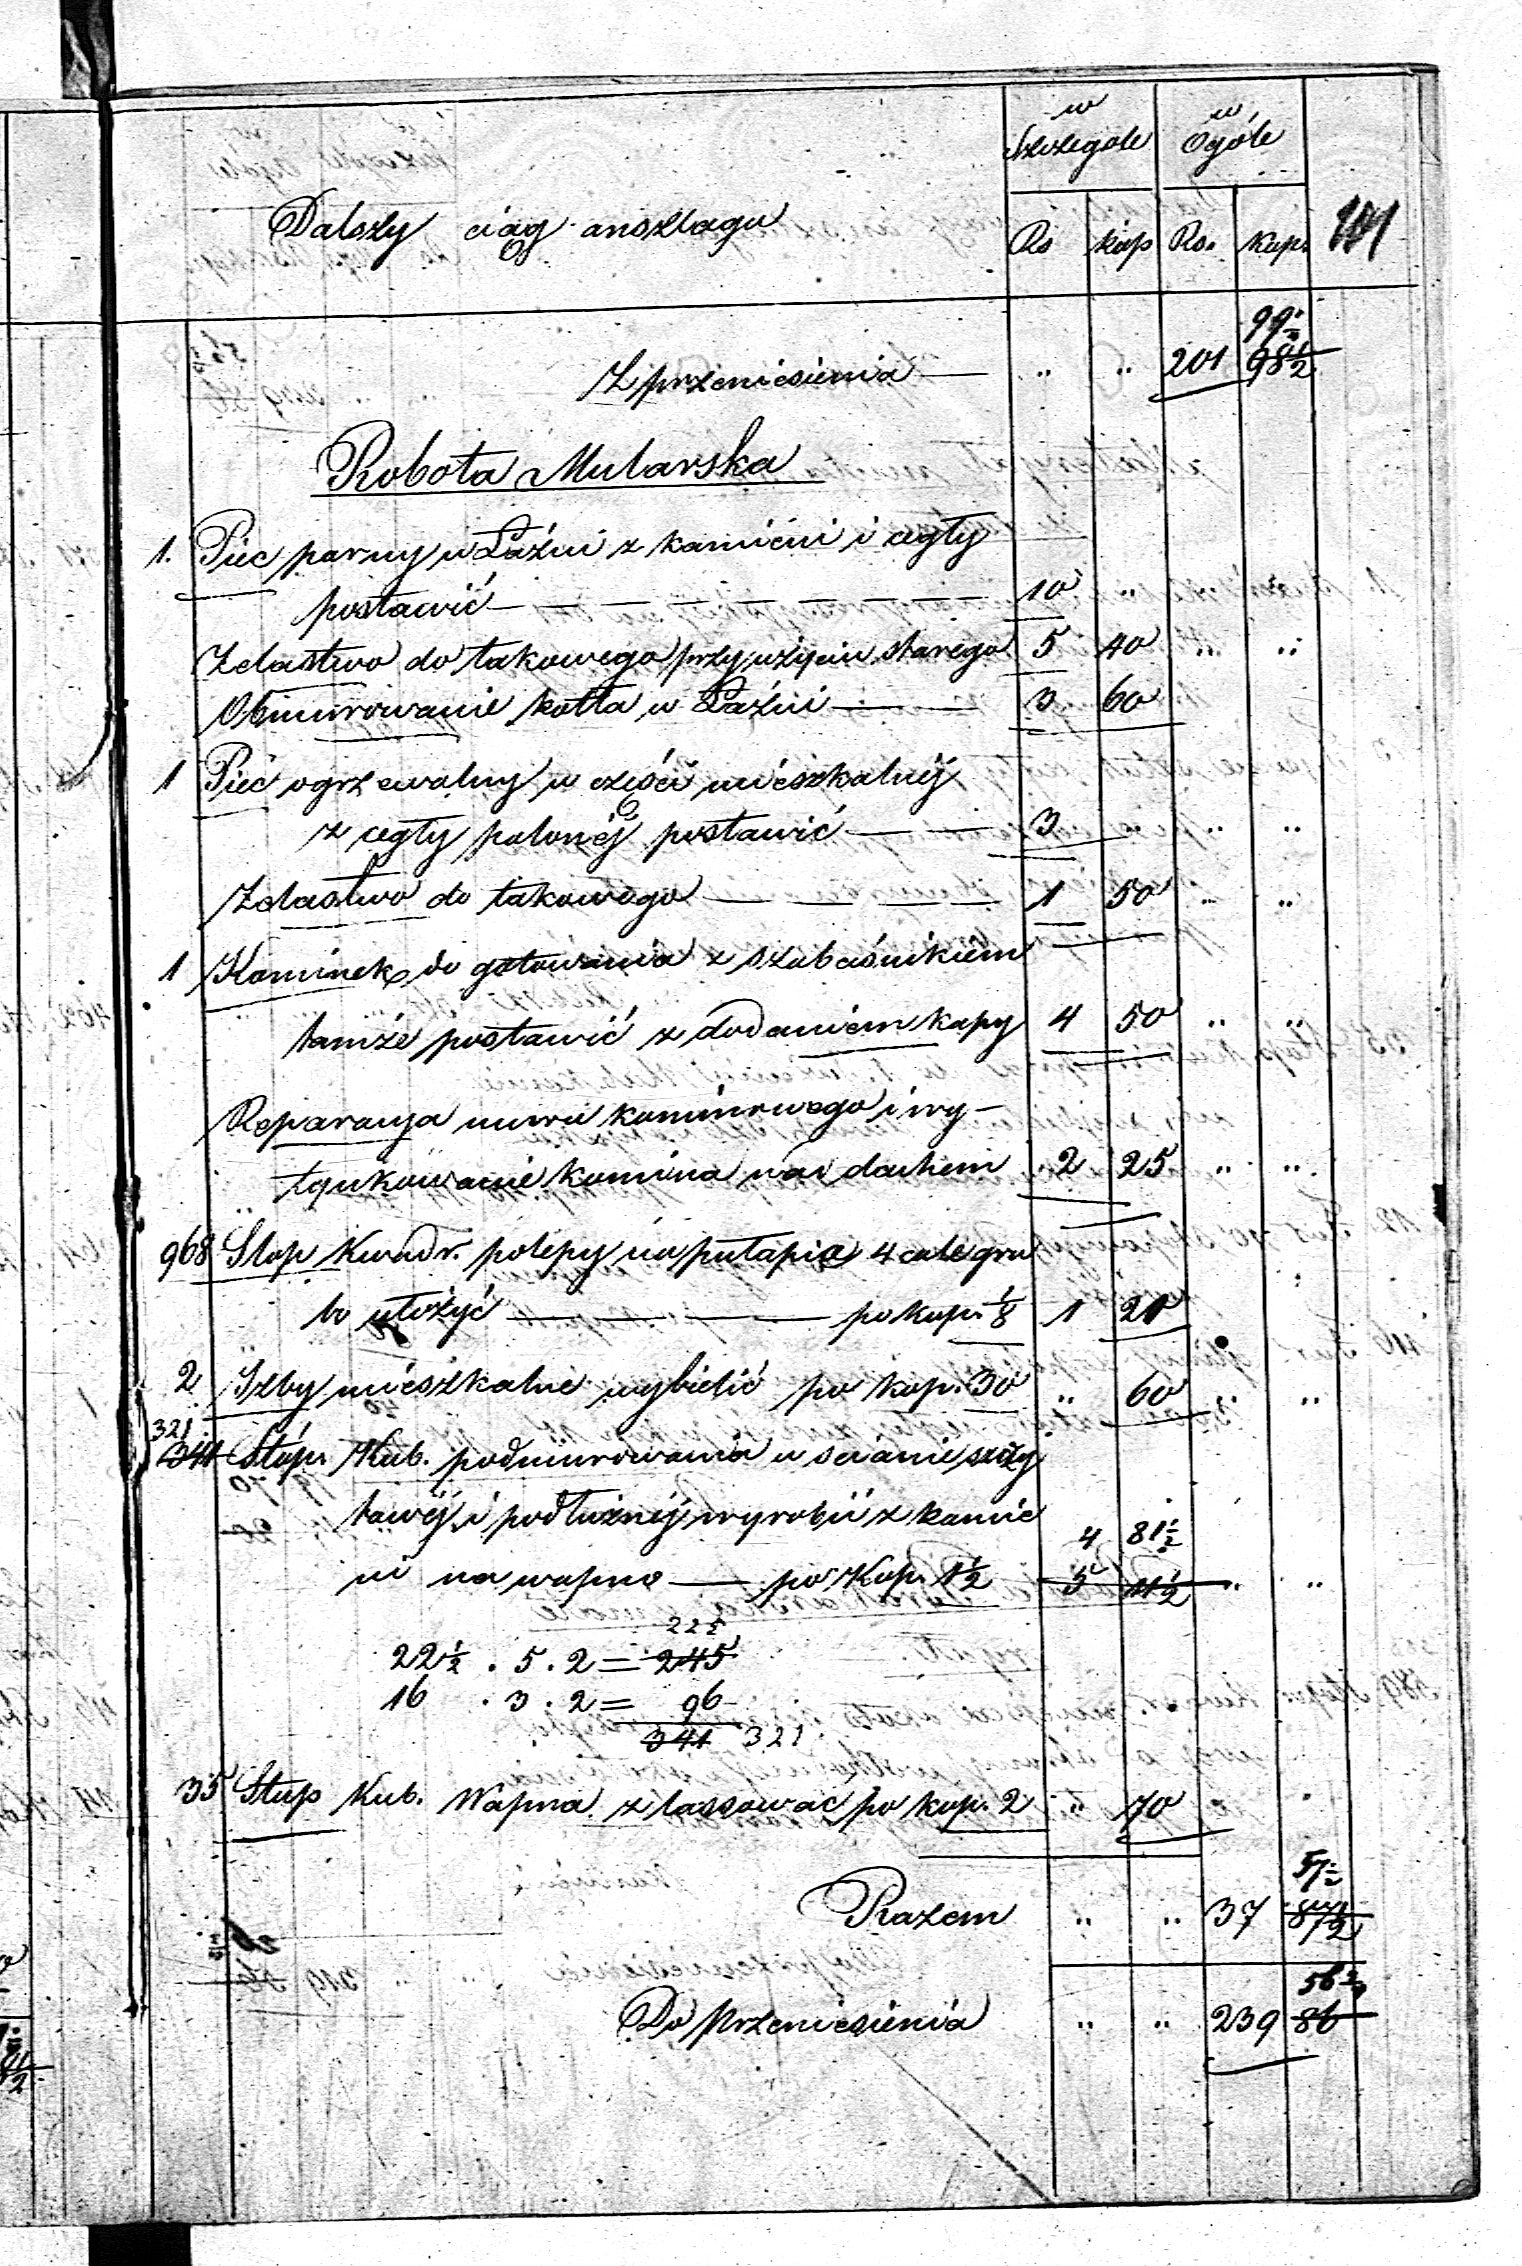 w w
Szczególe Ogóle
Dalszy ciąg anszlagu Rs kop Rs. kop. 101
99½
Z przeniesienia — " " 201 98½
Robota Mularska
1. Piec parny w Łaźni z kamieni i cegły
postawić — — — — — — 10 "
Żelastwo do takowego przy użyciu starego 5 40 " "
Obmurowanie kotła w Łaźni — — 3 60
1 Piec ogrzewalny w części mieszkalnéj
z cegły palonéj postawić — — 3 — " "
Żelastwo do takowego — — — — 1 50 " "
1 Kominek do gotowania z szabaśnikiem
tamże postawić z dodaniem kapy 4 50 " "
Reparacya muru kominowego i wy-
tynkowanie komina nad dachem " 2 25 " "
968 Stop kwadr. polepy na pułapie 4 cale gru
bo ułożyć — — — po kop. ⅛ 1 21
2 Izby mieszkalne wybielić po kop. 30 " 60 " "
321
341 Stóp. Kub. podmurowania w scianie szczy
towéj i podłużnéj wyrobić z kamie
4 81½
ni na wapno — po Kop. 1½ 5 11½ " "
225
22½ . 5 . 2 = 245
16 . 3 . 2 = 96
341 321
35 Stup Kub. Wapna zlassować po kop. 2 " 70
57½
Razem " " 37 87½
56½
Do przeniesienia " " 239 86